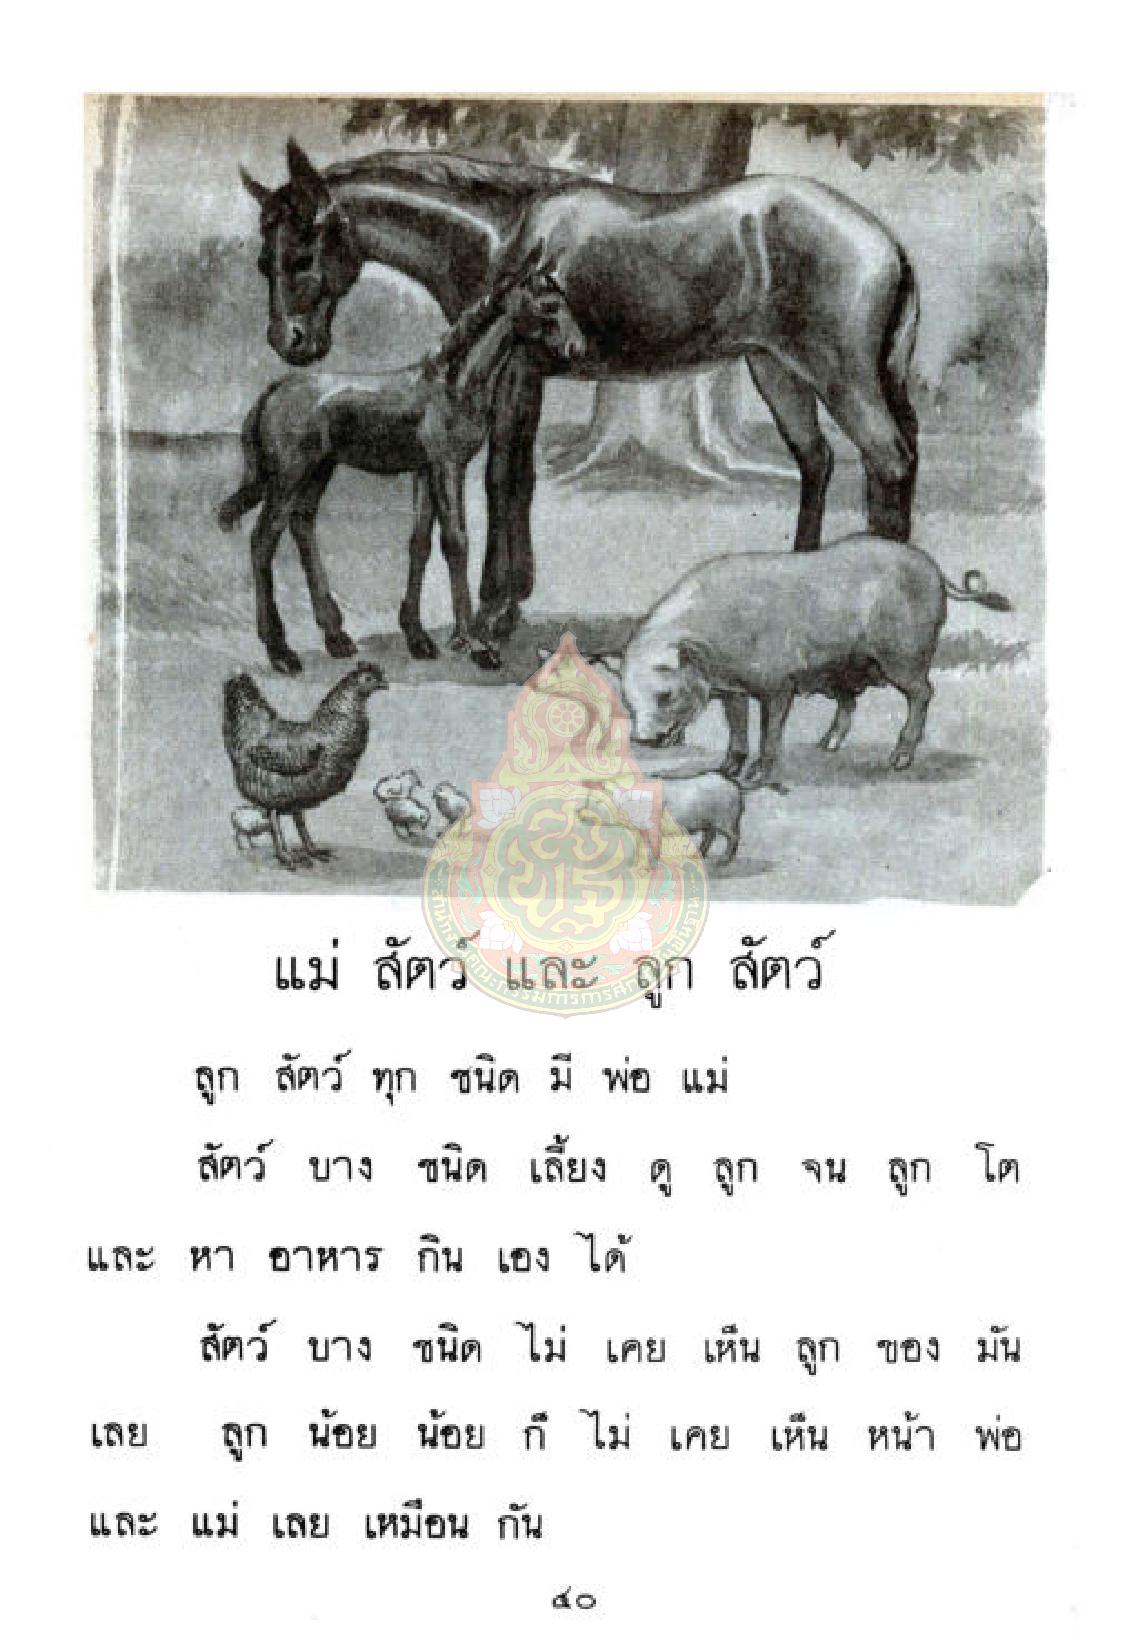 แม่ สัตว์ และ ลูก สัตว์
ลูก สัตว์ ทุก ชนิด มี พ่อ แม่
สัตว์ บาง ชนิด เลี้ยง ดู ลูก จน ลูก โต
และ หา อาหาร กิน เอง ได้
สัตว์ บาง ชนิด ไม่ เคย เห็น ลูก ของ มัน
เลย ลูก น้อย น้อย ก็ ไม่ เคย เห็น หน้า พ่อ
และ แม่ เลย เหมือน กัน
๔๐